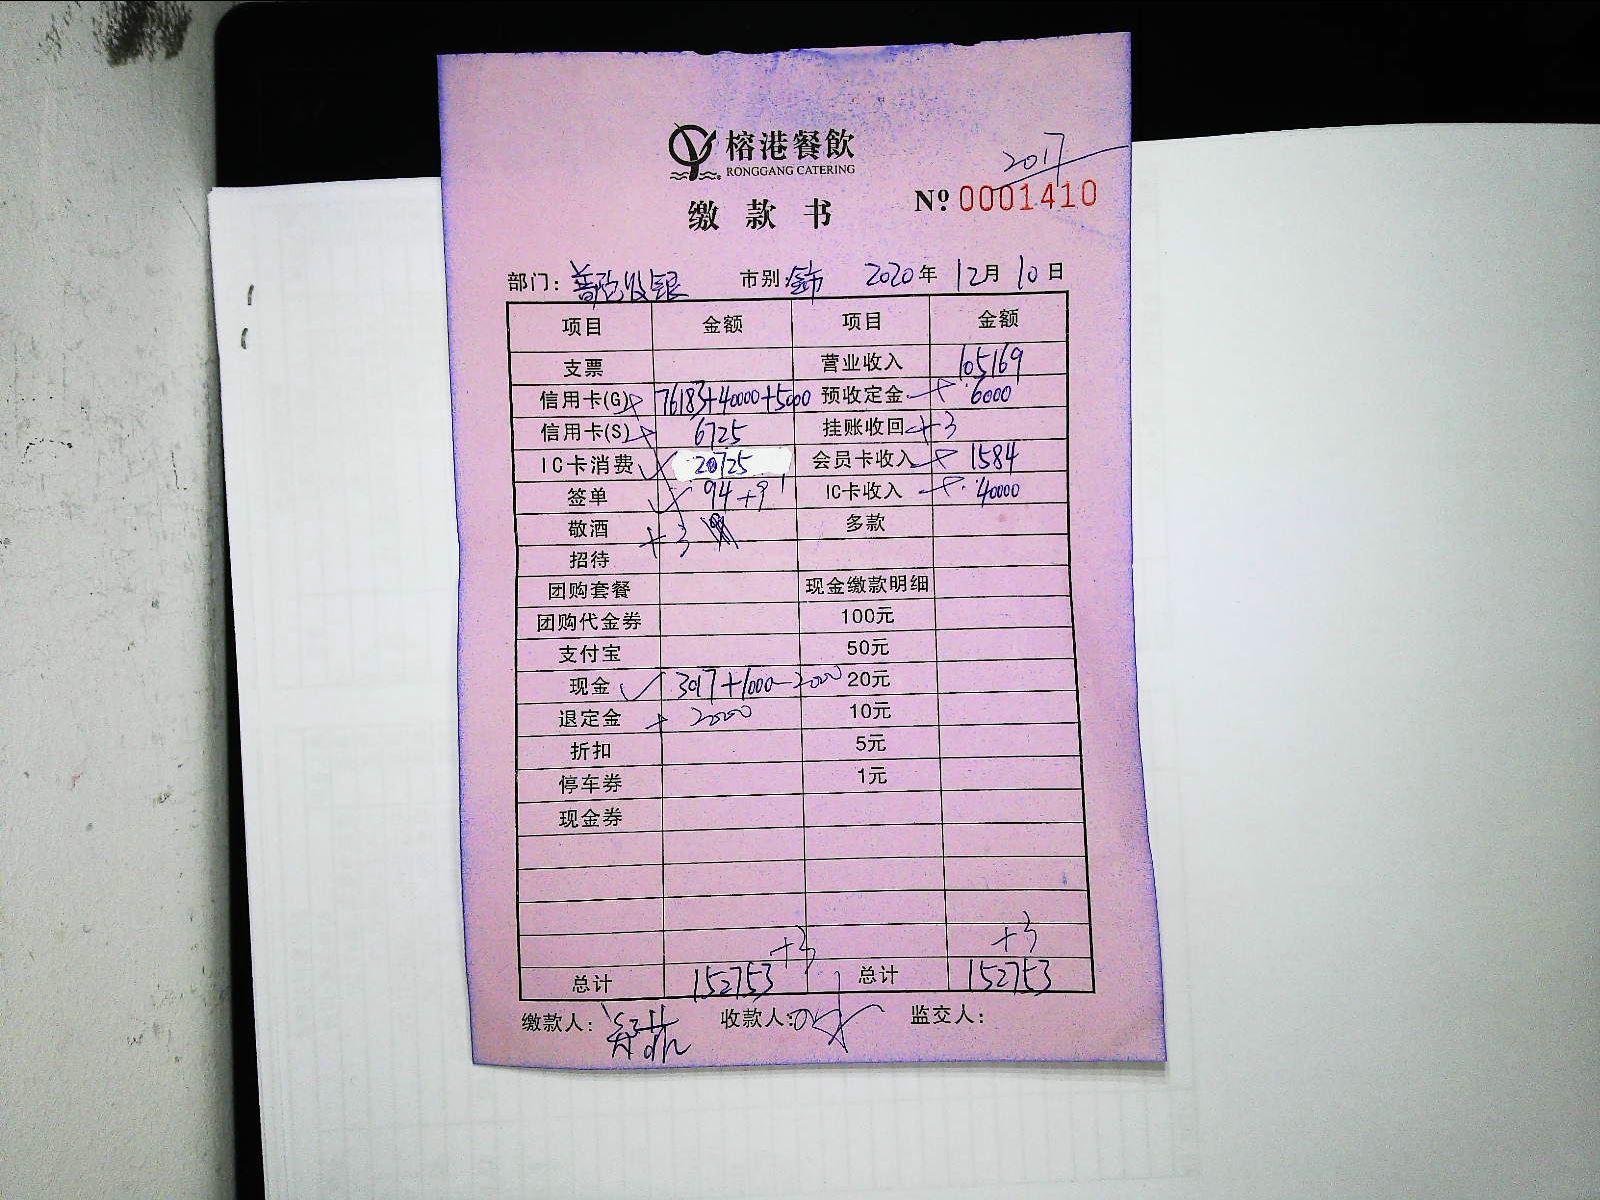 榕港餐飲
RONGGANG CATERING
2017
缴款书
Nº 0001410
部门: 收银 市别: 全市 2020年 12月 10日
项目 金额 项目 金额
支票 营业收入 105169
信用卡(G) 76183+40000+5000 预收定金 6000
信用卡(S) 6725 挂账收回 +3
IC卡消费 20725 会员卡收入 1584
签单 94+9 IC卡收入 40000
敬酒 +3 多款
招待
团购套餐 现金缴款明细
团购代金券 100元
支付宝 50元
现金 3017+1000-2000 20元
退定金 2000 10元
折扣 5元
停车券 1元
现金券
+3 +3
总计 152753 总计 152753
缴款人: 收款人: 监交人: